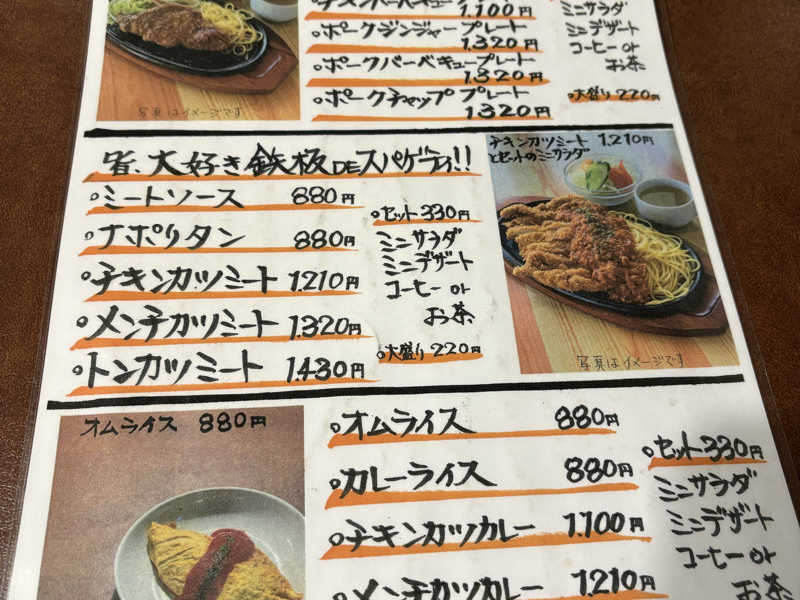 1.100円
ミニサラダ
ポークジンジャープレート
1.320円
ミニデザート
コーヒー or
お茶
ポークバーベキュープレート
1.320円
ポークチャッププレート
1.320円
大盛り 220円
写真はイメージです
皆、大好き鉄板DEスパゲティ!!
ミートソース 880円
ナポリタン 880円
チキンカツミート 1.210円
メンチカツミート 1.320円
トンカツミート 1.430円
セット 330円
ミニサラダ
ミニデザート
コーヒー or
お茶
大盛り 220円
チキンカツミート 1.210円
とセットのミニサラダ
写真はイメージです
オムライス 880円
オムライス 880円
カレーライス 880円
チキンカツカレー 1.100円
メンチカツカレー 1.210円
セット 330円
ミニサラダ
ミニデザート
コーヒー or
お茶